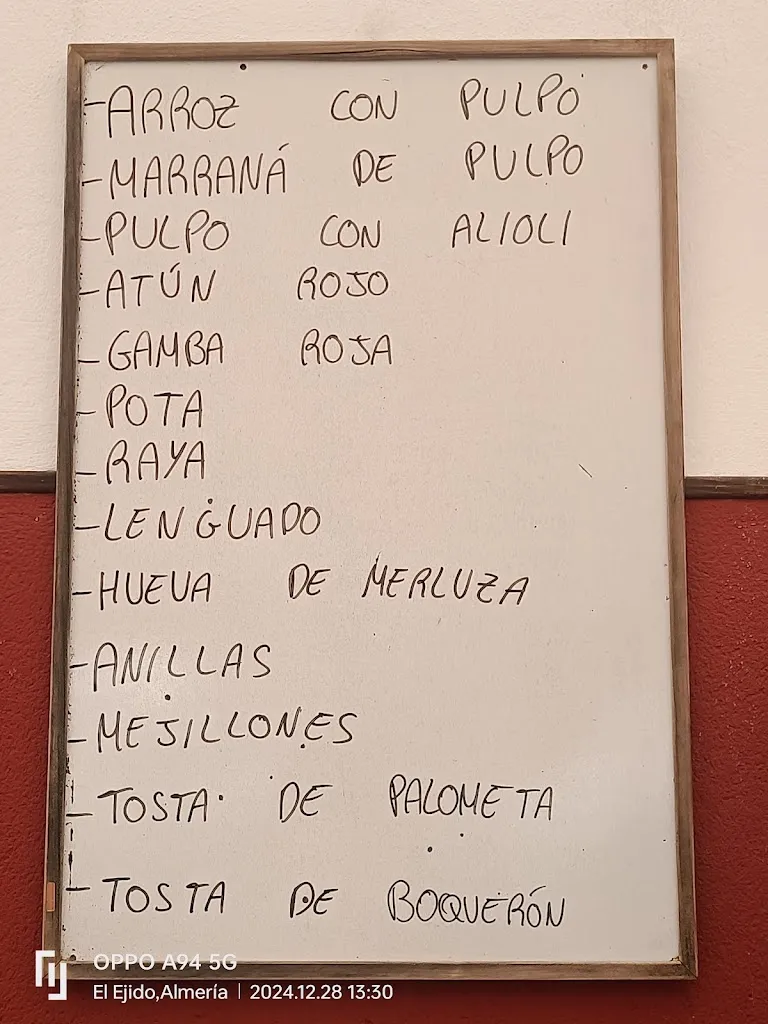 -ARROZ CON PULPO
-MARRANÁ DE PULPO
-PULPO CON ALIOLI
-ATÚN ROJO
-GAMBA ROJA
-POTA
-RAYA
-LENGUADO
-HUEVA DE MERLUZA
-ANILLAS
-MEJILLONES
-TOSTA DE PALOMETA
-TOSTA DE BOQUERÓN
OPPO A94 5G
El Ejido,Almería | 2024.12.28 13:30